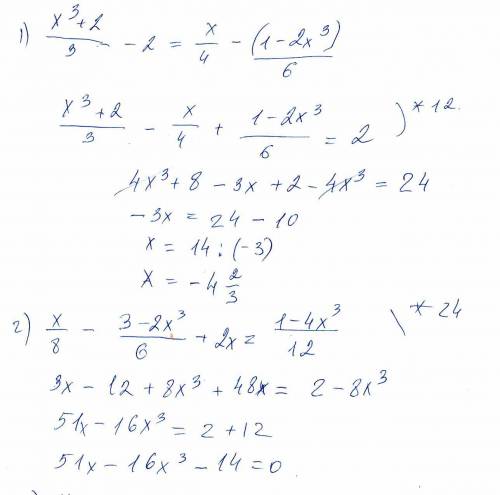 1) (x³+2)/3 - 2 = x/4 - (1-2x³)/6
(x³+2)/3 - x/4 + (1-2x³)/6 = 2 ) * 12.
4x³ + 8 - 3x + 2 - 4x³ = 24
-3x = 24 - 10
x = 14 : (-3)
x = -4 2/3
2) x/8 - (3-2x³)/6 + 2x = (1-4x³)/12 \ * 24
3x - 12 + 8x³ + 48x = 2 - 8x³
51x - 16x³ = 2 + 12
51x - 16x³ - 14 = 0